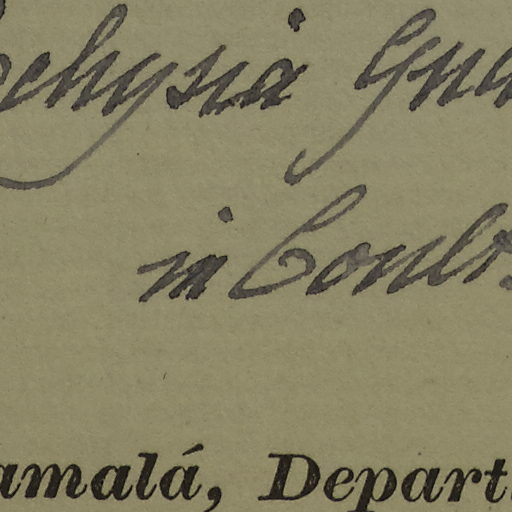 chysia Gua
in Coult.
amalá, Depart.